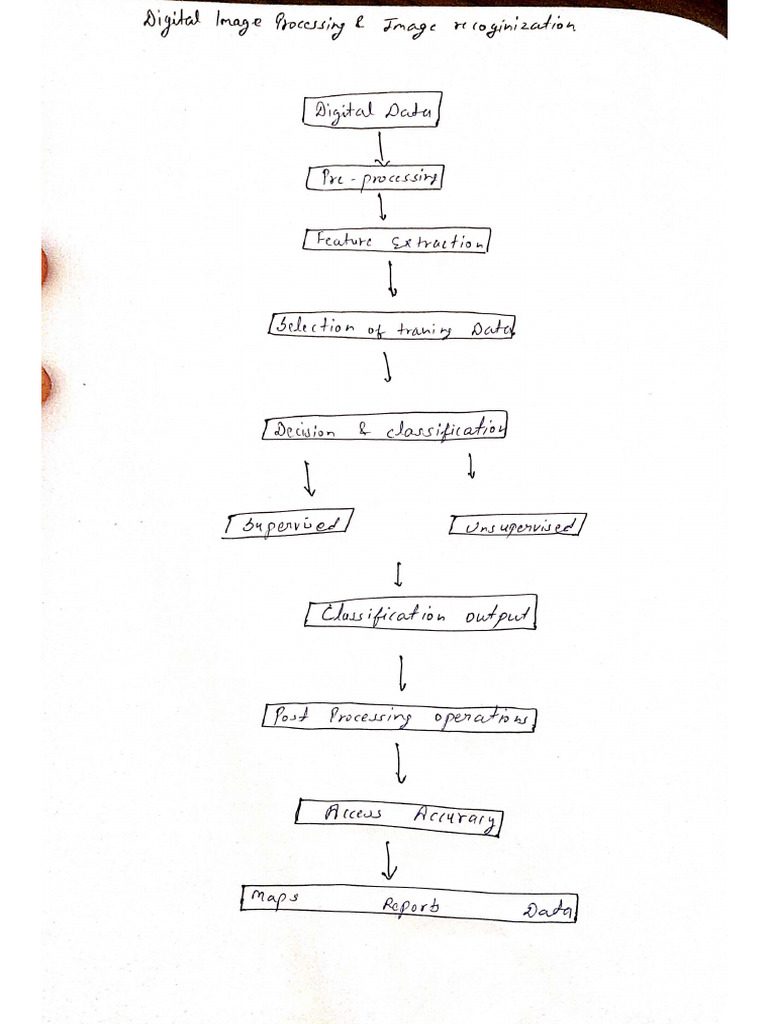 Digital Image Processing & Image recoginization
Digital Data
Pre-processing
Feature Extraction
Selection of traning Data
Decision & classification
Supervised Unsupervised
Classification output
Post Processing operations
Access Accuracy
Maps Reports Data